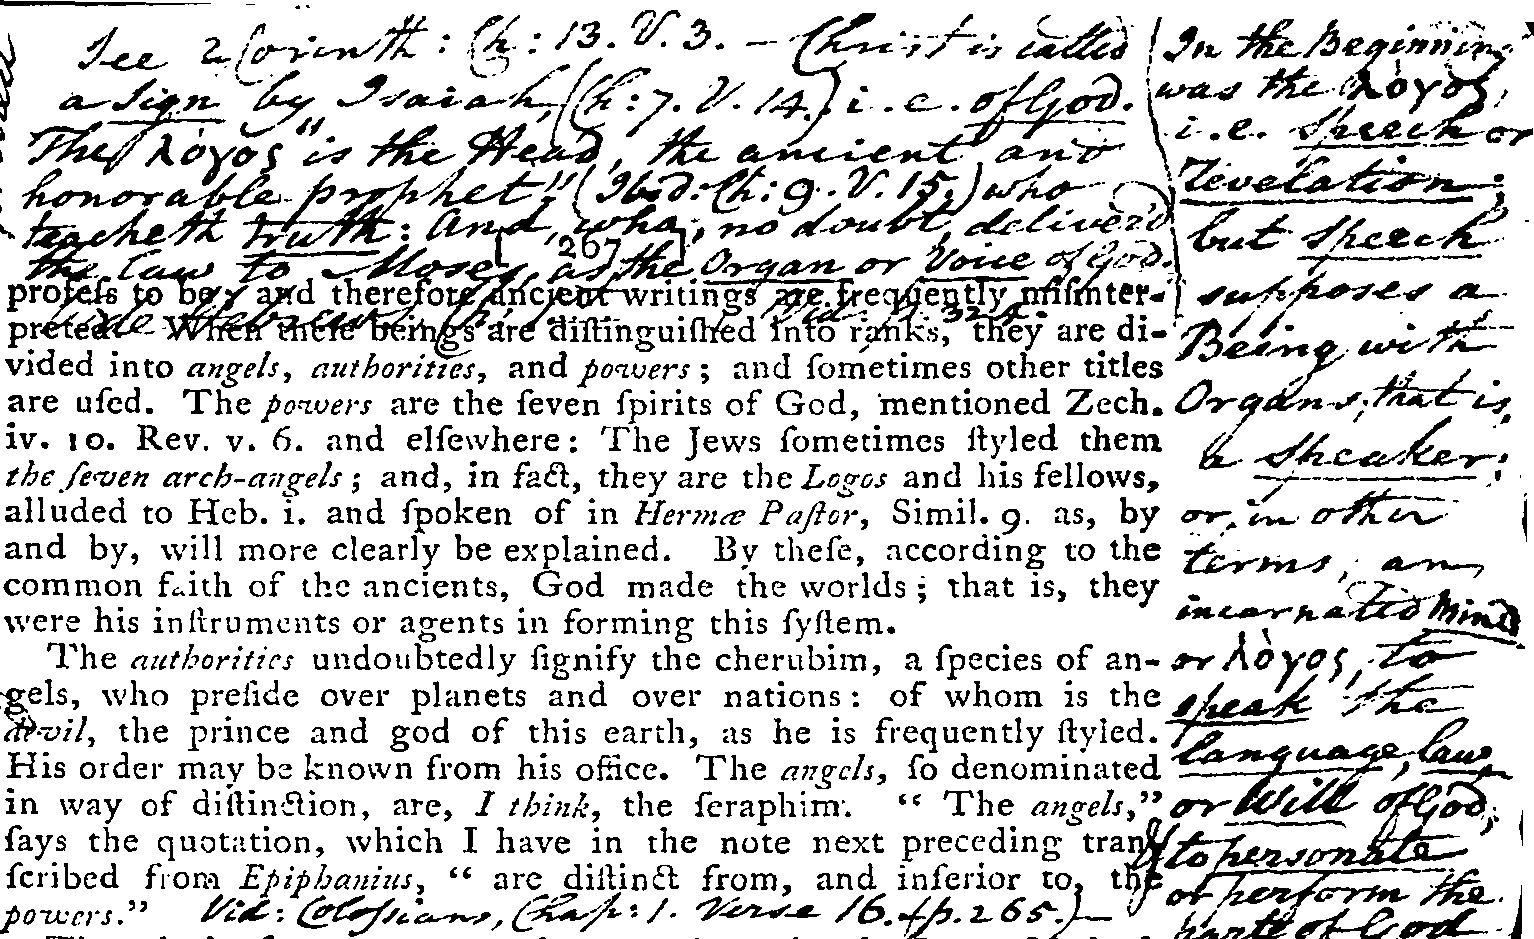 See 2 Corinth: Ch: 13. V. 3. – Christ is called
a Sign by Isaiah, (Ch: 7. V. 14.) i. e. of God.
The λόγος "is the Head, the ancient and
honorable prophet." (Ibid: Ch: 9. V. 15.) who
teacheth truth: And, who, no doubt, deliver'd
the law to Moses, as the Organ or Voice of God.
[ 267 ]
vide Hebrews Vid: p. 324.
profeſs to be, and therefore ancient writings are frequently miſinter-
preted. When theſe beings are diſtinguiſhed into ranks, they are di-
vided into angels, authorities, and powers; and ſometimes other titles
are uſed. The powers are the ſeven ſpirits of God, mentioned Zech.
iv. 10. Rev. v. 6. and elſewhere: The Jews ſometimes ſtyled them
the ſeven arch-angels; and, in fact, they are the Logos and his fellows,
alluded to Heb. i. and ſpoken of in Hermæ Paſtor, Simil. 9. as, by
and by, will more clearly be explained. By theſe, according to the
common faith of the ancients, God made the worlds; that is, they
were his inſtruments or agents in forming this ſyſtem.
The authorities undoubtedly ſignify the cherubim, a ſpecies of an-
gels, who preſide over planets and over nations: of whom is the
devil, the prince and god of this earth, as he is frequently ſtyled.
His order may be known from his office. The angels, ſo denominated
in way of diſtinction, are, I think, the ſeraphim. "The angels,"
ſays the quotation, which I have in the note next preceding tran-
ſcribed from Epiphanius, "are diſtinct from, and inferior to, the
powers." Vid: Coloſsians, Chap: 1. Verse 16. (p. 265.) –
In the Beginning
was the λόγος,
i. e. speech or
Revelation;
but speech
supposes a
Being with
Organs, that is,
a speaker:
or, in other
terms, an
incarnated Mind
or λόγος, to
speak the
language, law
or Will of God;
to personate
or perform the
parts of God